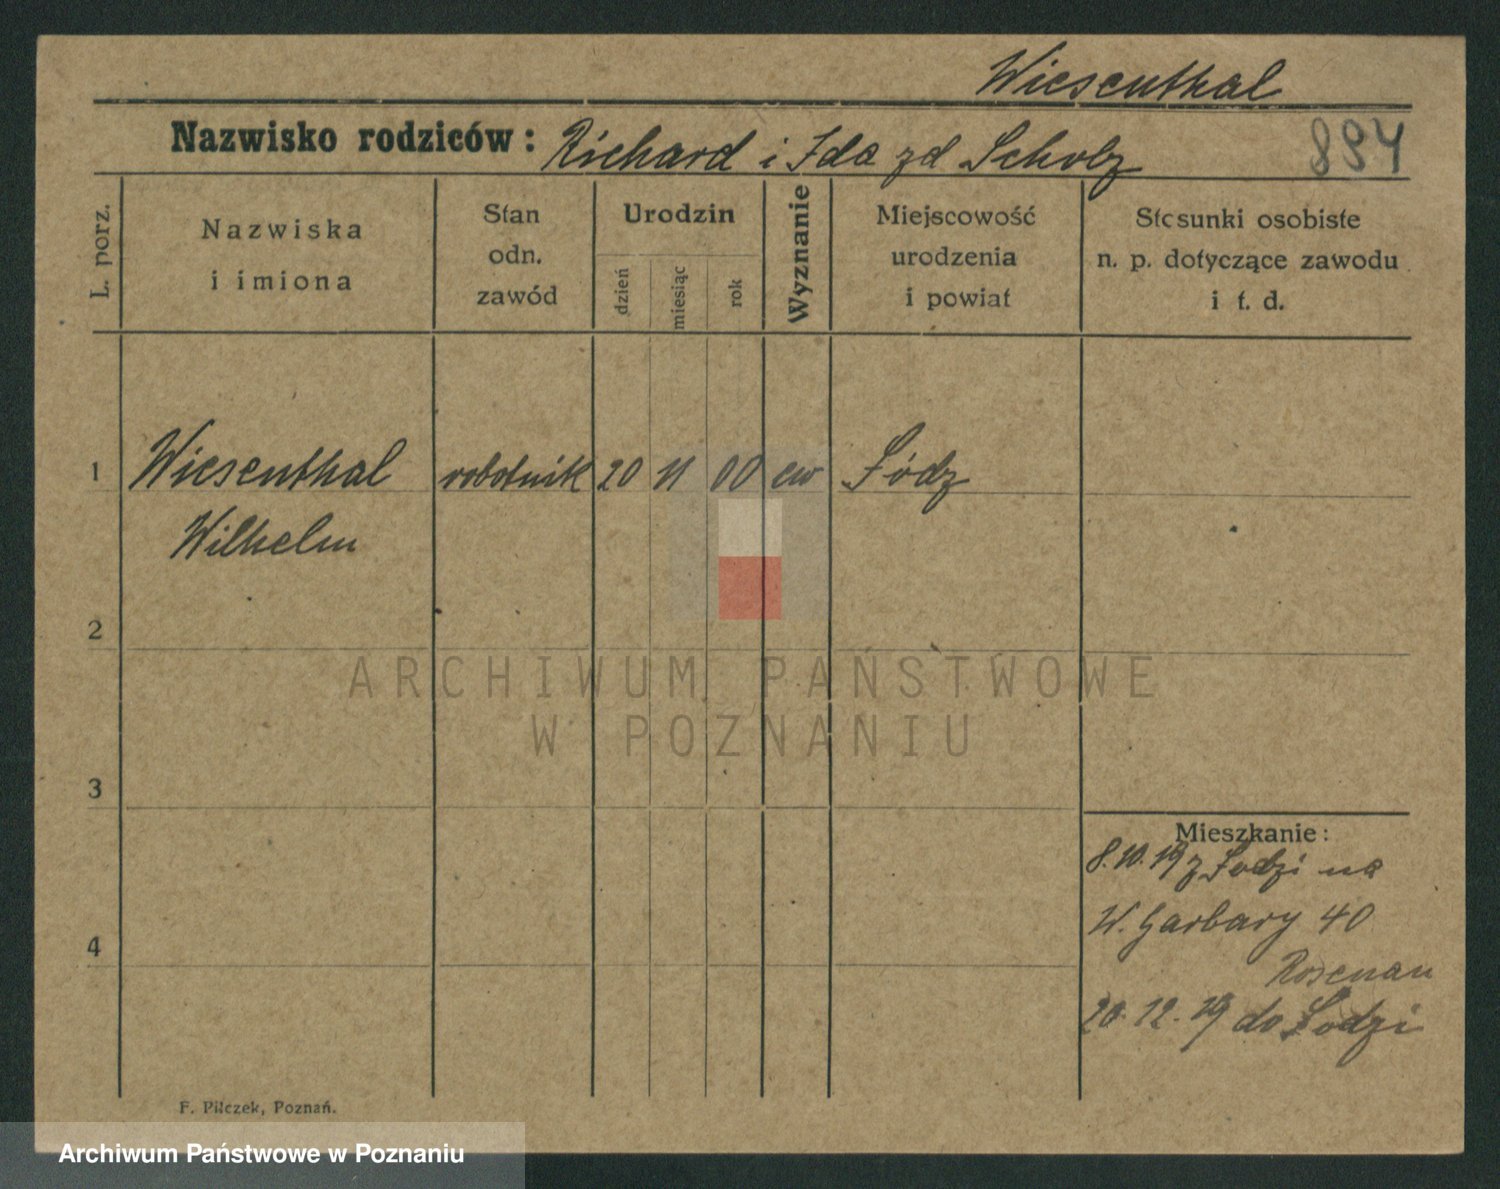 Wiesenthal
Nazwisko rodziców: Richard i Ida zd Scholz
894
L. porz.
Nazwiska
i imiona
Stan
odn.
zawód
Urodzin
dzień
miesiąc
rok
Wyznanie
Miejscowość
urodzenia
i powiat
Stosunki osobiste
n. p. dotyczące zawodu
i t. d.
1 Wiesenthal robotnik 20 11 00 ew Łódz
Wilhelm
2
ARCHIWUM PAŃSTWOWE
W POZNANIU
3
Mieszkanie:
8.10.19 z Łodzi na
W. Garbary 40
4
Rosenau
20.12.19 do Łodzi
F. Pilczek, Poznań.
Archiwum Państwowe w Poznaniu